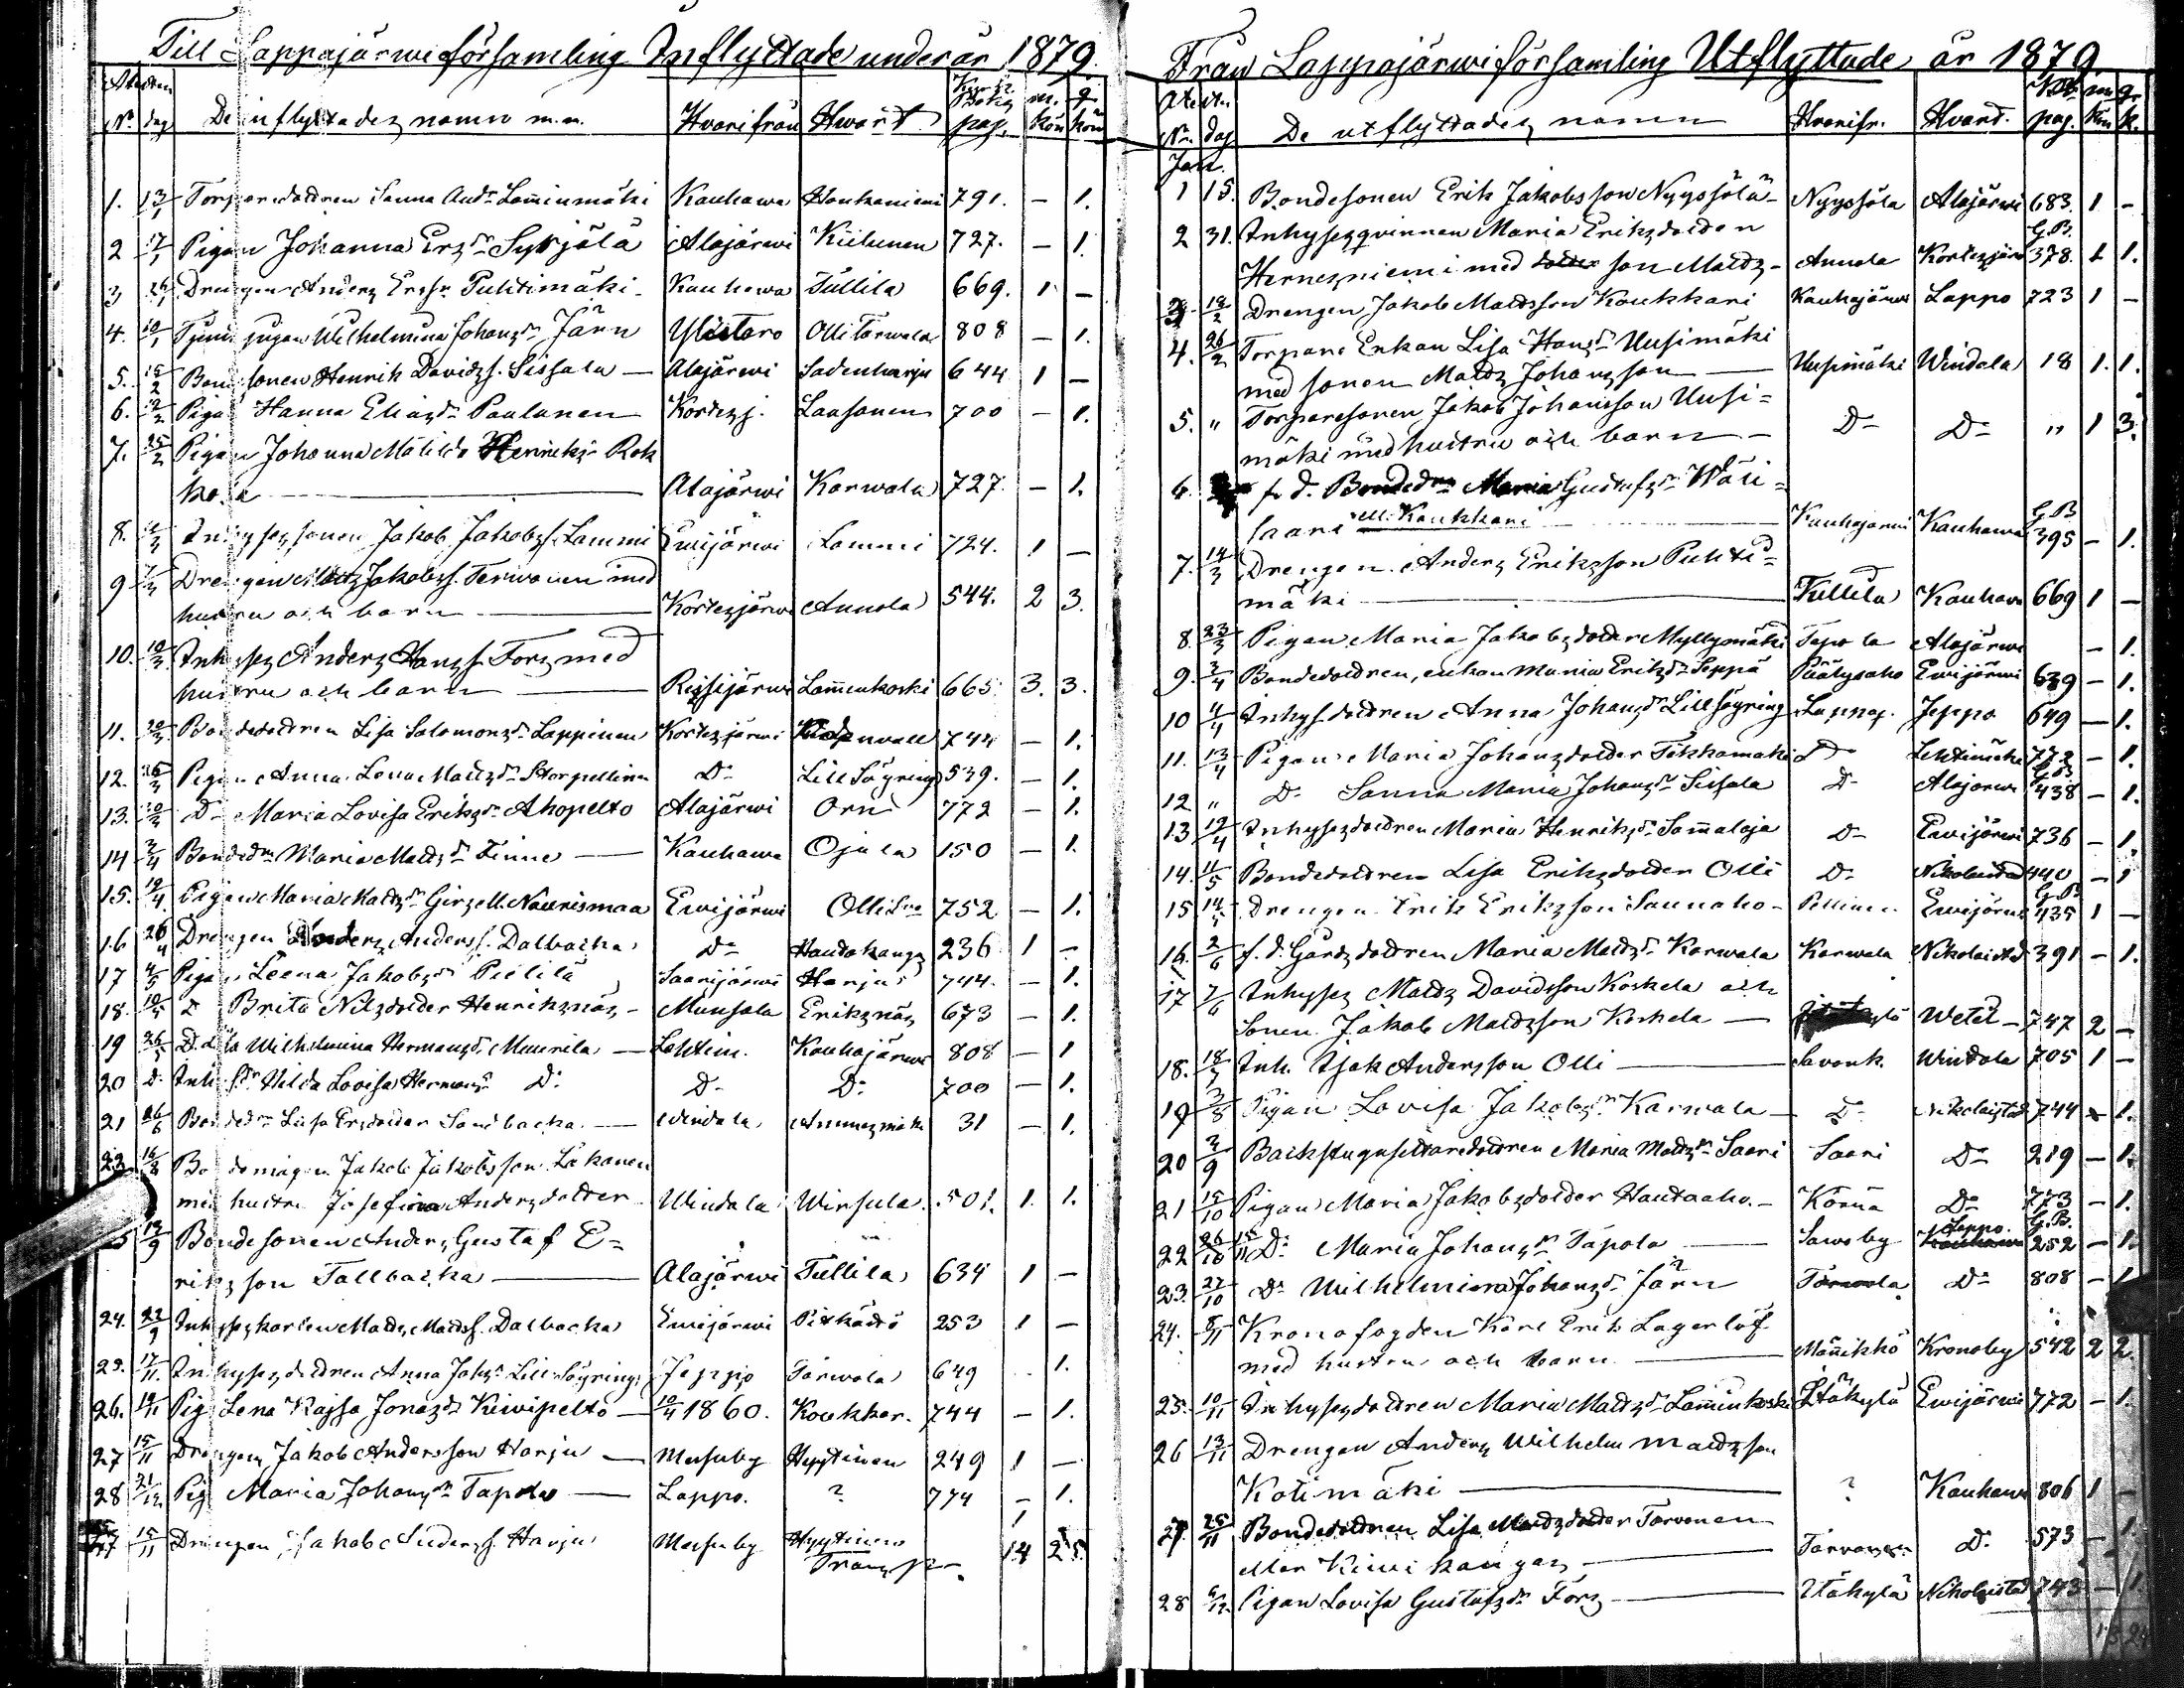 Till Lappajärwi församling Inflyttade under år 1879.
No dag De inflyttades namn m.m. Hvarifrån Hwart pag. m. kön q. kön
1. 13/1 Torparedottren Sanna And.dr Lam̄inmäki Kauhawa Haukaniemi 791. – 1.
2 17/1 Pigan Johanna Ers.dr Syrjälä Alajärwi Kiilunen 727. – 1.
3 26/1 Drengen Anders Erss. Puhtimäki Kauhawa Tullila 669. 1 –
4. 10/1 pigan Wilhelmina Johans.dr Järn Ylistaro Olli Tarwola 808 – 1.
5. 15/2 sonen Henrik Davids. Sissala – Alajärwi Sadenharju 644 1 –
6. Pigan Hanna Elias.dr Paalanen Kortesj. Lassonen 700 – 1.
7. 25/2 Pigan Johanna Matilda Henriks.dr Rok
kola Alajärwi Karwala 727. – 1.
8. Inhysessonen Jakob Jakobs. Lammi Ewijärwi Lammi 724. 1 –
9 Drengen Matts Jakobss. Terwonen med
hustru och barn Kortesjärwi Annola 544. 2 3.
10. 10/3 Inhyses Anders Hanss. Fors med
hustru och barn Reisijärwi Lam̄inkoski 665. 3. 3.
11. 20/3 Bondedottren Lisa Salomons.dr Lappinen Kortesjärwi 744 – 1.
12. 26/3 Pigan Anna Lena Matts.dr Storpellinen D:o Lill Sÿring 539. – 1.
13. D:o Maria Lovisa Eriks.dr Ahopelto Alajärwi Orn 772 – 1.
14 2/4 Bonded:n Maria Matts.dr Finne – Kauhawa Ojala 150 – 1.
15. 19/4 Pigan Maria Matts.dr Girs ell. Naurismaa Ewijärwi Olli 752 – 1.
16 26/4 Drengen Anders Anderss. Dalbacka D:o Haudakangas 236 1 –
17 4/5 Pigan Leena Jakobs.dr Pielilä Saarijärwi Harju 744. – 1.
18. 10/5 D:o Brita Nilsdotter Henriksnäs – Munsala Eriksnäs 673 – 1.
19 26/5 D:o Wilhelmina Hermans.dr Muurila – Lehtim. Kauhajärwi 808 – 1
20 D:o Inh. Hilda Lovisa Hermans.dr D:o D:o D:o 700 – 1.
21 26/6 Bonded:n Lisa Ersdotter Sandbacka – Windala 31 – 1.
22 16/8 Bondemågen Jakob Jakobsson Lakanen
med hustru Josefina Andersdotter Windala Wirsula 501. 1. 1.
13/9 Bondesonen Anders Gustaf E=
riksson Tallbacka – Alajärwi Tullila 634 1 –
24. 22/9 Inhyseskarlen Matts Mattss. Dalbacka Ewijärwi 253 1 –
25. 17/11. Inhysesdottren Anna Johs.dr Lill Sÿring Jeppo Tarwola 649 1.
26. 19/11 Pig. Lena Kajsa Jonas.dr Kiwipelto – 1860. Koukkar. 744 – 1.
27 15/11 Drengen Jakob Andersson Harju – Mussuby Hyytinen 249 1 –
28 21/12 Pig. Maria Johans.dr Tapola – Lappo. ? 774 – 1.
15/11 Drengen Jakob Anderss. Harju Mussuby Hyytinen
Transp. 14 25
Från Lappajärwi församling Utflyttade år 1879
No dag De utflyttades namn Hvarifr. Hvart. pag. m. kön q. k.
Jan.
1 15. Bondesonen Erik Jakobsson Nyyssölä – Nyyssölä Alajärwi 683. 1 –
2 31. Inhysesqvinnan Maria Eriksdotter G.B.
Hernesniemi med son Matts – Annola Kortesjärwi 378. 1 1.
3 12/2 Drengen Jakob Mattsson Koukkari Kauhajärwi Lappo 723 1 –
4. 26/2 Torpare Enkan Lisa Hans.dr Uusimäki
med sonen Matts Johansson – Uusimäki Windala 18 1. 1.
5. " Torparesonen Jakob Johansson Uusi=
mäki med hustru och barn – D:o D:o " 1 3.
6. f. d. Bonded:n Maria Gustafs.dr Wäli=
saari ell. Koukkari Kauhajärwi Kauhawa G.B. 395 – 1.
7. 14/3 Drengen Anders Eriksson Puhti=
mäki Tullila Kauhawa 669 1 –
8. 23/3 Pigan Maria Jakobsdotter Myllymäki Tapola Alajärwi – 1.
9. 3/4 Bondedottren, enkan Maria Eriks.dr Seppä Päälysaho Ewijärwi 639 – 1.
10 4/4 Inhys. dottren Anna Johans.dr Lillsÿring Lappaj. Jeppo 649 – 1.
11. 13/4 Pigan Maria Johansdotter Tikkamäki D:o Lehtimäki 772 – 1.
12 " D:o Sanna Maria Johans.dr Sissala D:o Alajärwi G.B. 438 – 1.
13 19/4 Inhysesdottren Maria Henriks.dr Sam̄alaja D:o Ewijärwi 736 – 1.
14. 11/5 Bondedottren Lisa Eriksdotter Olli D:o Nikolaistad 440 – 1
15 14/5 Drengen Erik Eriksson Saunaho – Pellinen Ewijärwi G.B. 435 1 –
16. 2/6 f. d. Gårdsdottren Maria Matts.dr Karwala Karwala Nikolaistad 391 – 1.
17 7/6 Inhyses Matts Davidsson Koskela och
Sonen Jakob Mattsson Koskela – Wetel – 747 2 –
18. 18/7 Inh. Isak Andersson Olli Savonk. Windala 705 1 –
19 3/8 Pigan Lovisa Jakobs.dr Karwala – D:o Nikolaistad 744 – 1.
20 3/9 Backstugusittaredottren Maria Matts.dr Saari Saari D:o 219 – 1.
21 15/10 Pigan Maria Jakobsdotter Hautaaho – Körnä D:o 773 – 1.
22 26/10 15/11 D:o Maria Johans.dr Tapola – Sawoby Lappo. G.B. 252 – 1.
23. 27/10 D:o Wilhelmina Johans.dr Järn Tarwola D:o 808 – 1
24. 8/11 Kronofogden Karl Erik Lagerlöf
med hustru och barn – Män̄ikkö Kronoby 542 2 2.
25. 10/11 Inhysesdottren Maria Matts.dr Lam̄inkoski Itäkylä Ewijärwi 772 – 1.
26 13/11 Drengen Anders Wilhelm Mattsson
Kotimäki – ? Kauhawa 806 1 –
27. 25/11 Bondedottren Lisa Mattsdotter Tarvonen
eller Kiwikangas – Tarvonen D:o 573 – 1
28 Pigan Lovisa Gustafs.dr Fors – Itäkylä Nikolaistad 743 – 1